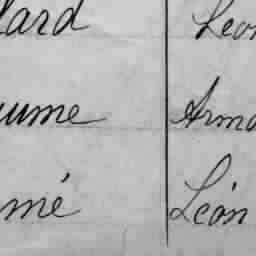 lard Leon
ume Arma
mé Léon